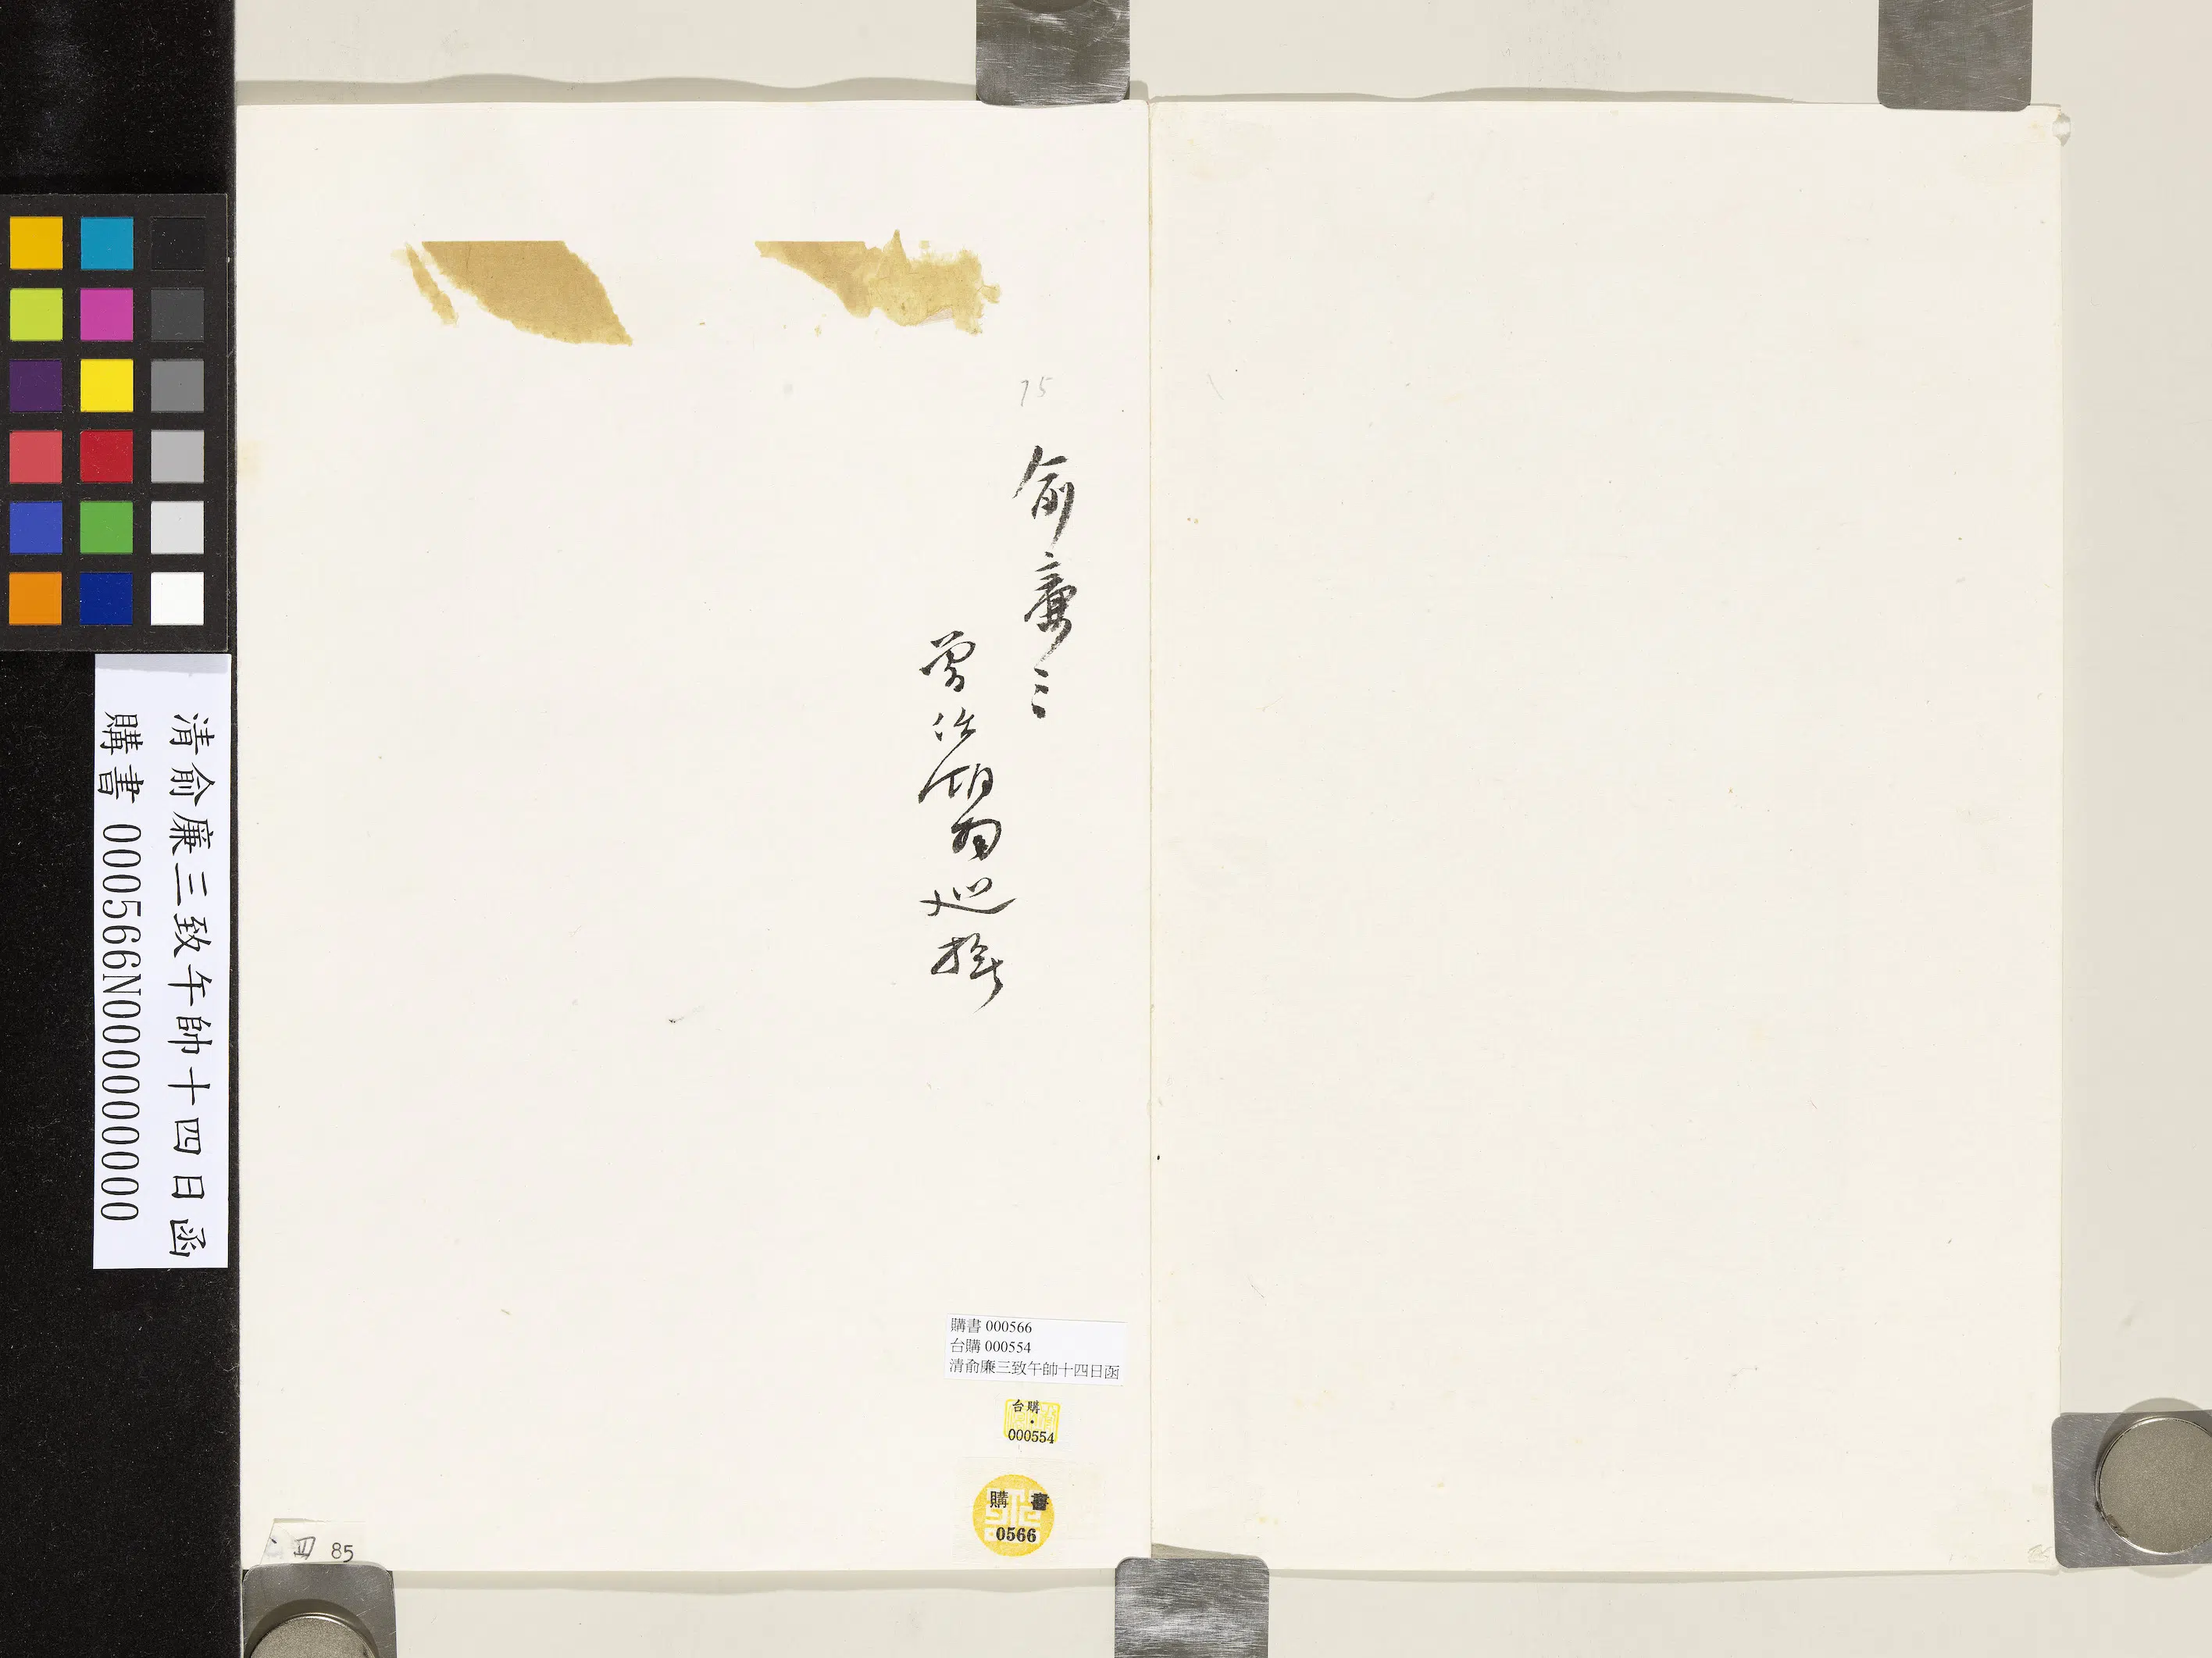 清俞廉三致午帥十四日函
購書 000566N000000000
75
俞廉三
曾任湖南巡撫
購書 000566
台購 000554
清俞廉三致午帥十四日函
台購
000554
購書
0566
85